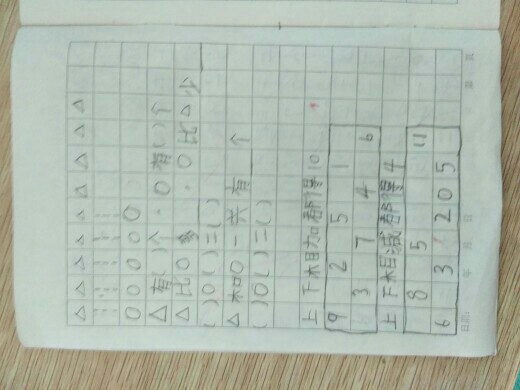 △ △ △ △ △ △ △ △ △
O O O O O
△有( )个 . O有( )个
△比O多 . O比△少
( )O( )=( )
△和O一共有 个
( )O( )=( )
上下相加都得10
9 2 5 1
3 7 4 6
上下相减都得4
8 5 11
6 3 20 5